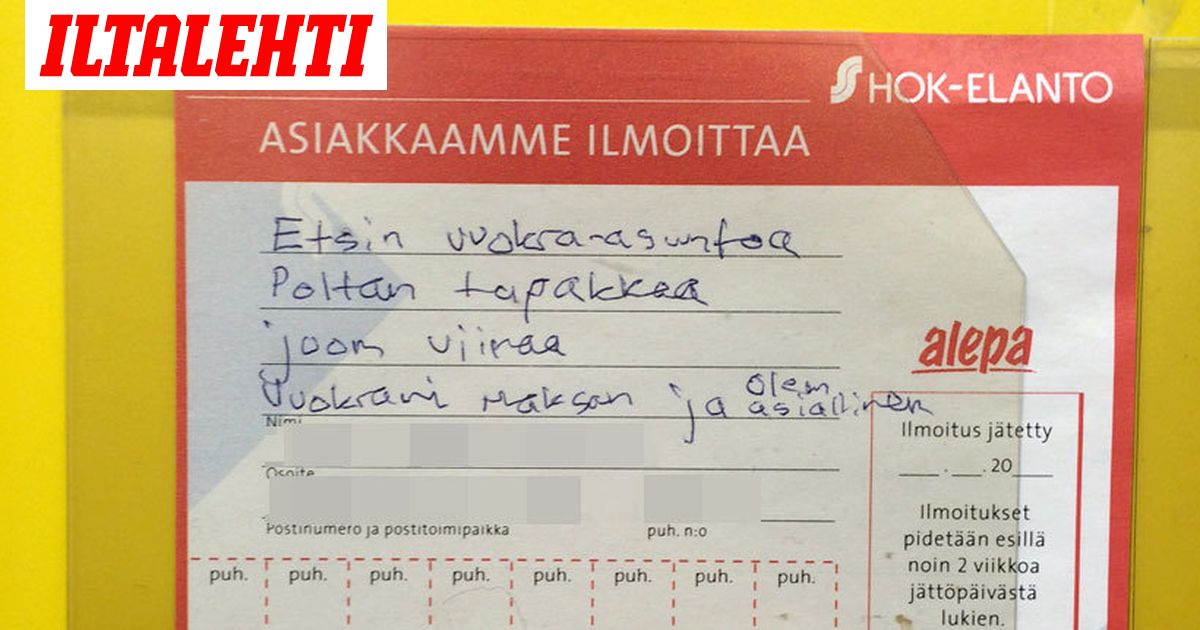 ILTALEHTI
HOK-ELANTO
ASIAKKAAMME ILMOITTAA
Etsin vuokra-asuntoa
Poltan tupakkaa
juon viinaa
Vuokrani maksan ja olen asiallinen
Nimi
Osoite
Postinumero ja postitoimipaikka
puh. n:o
alepa
Ilmoitus jätetty
___.___.20___
Ilmoitukset
pidetään esillä
noin 2 viikkoa
jättöpäivästä
lukien.
puh. puh. puh. puh. puh. puh. puh. puh.